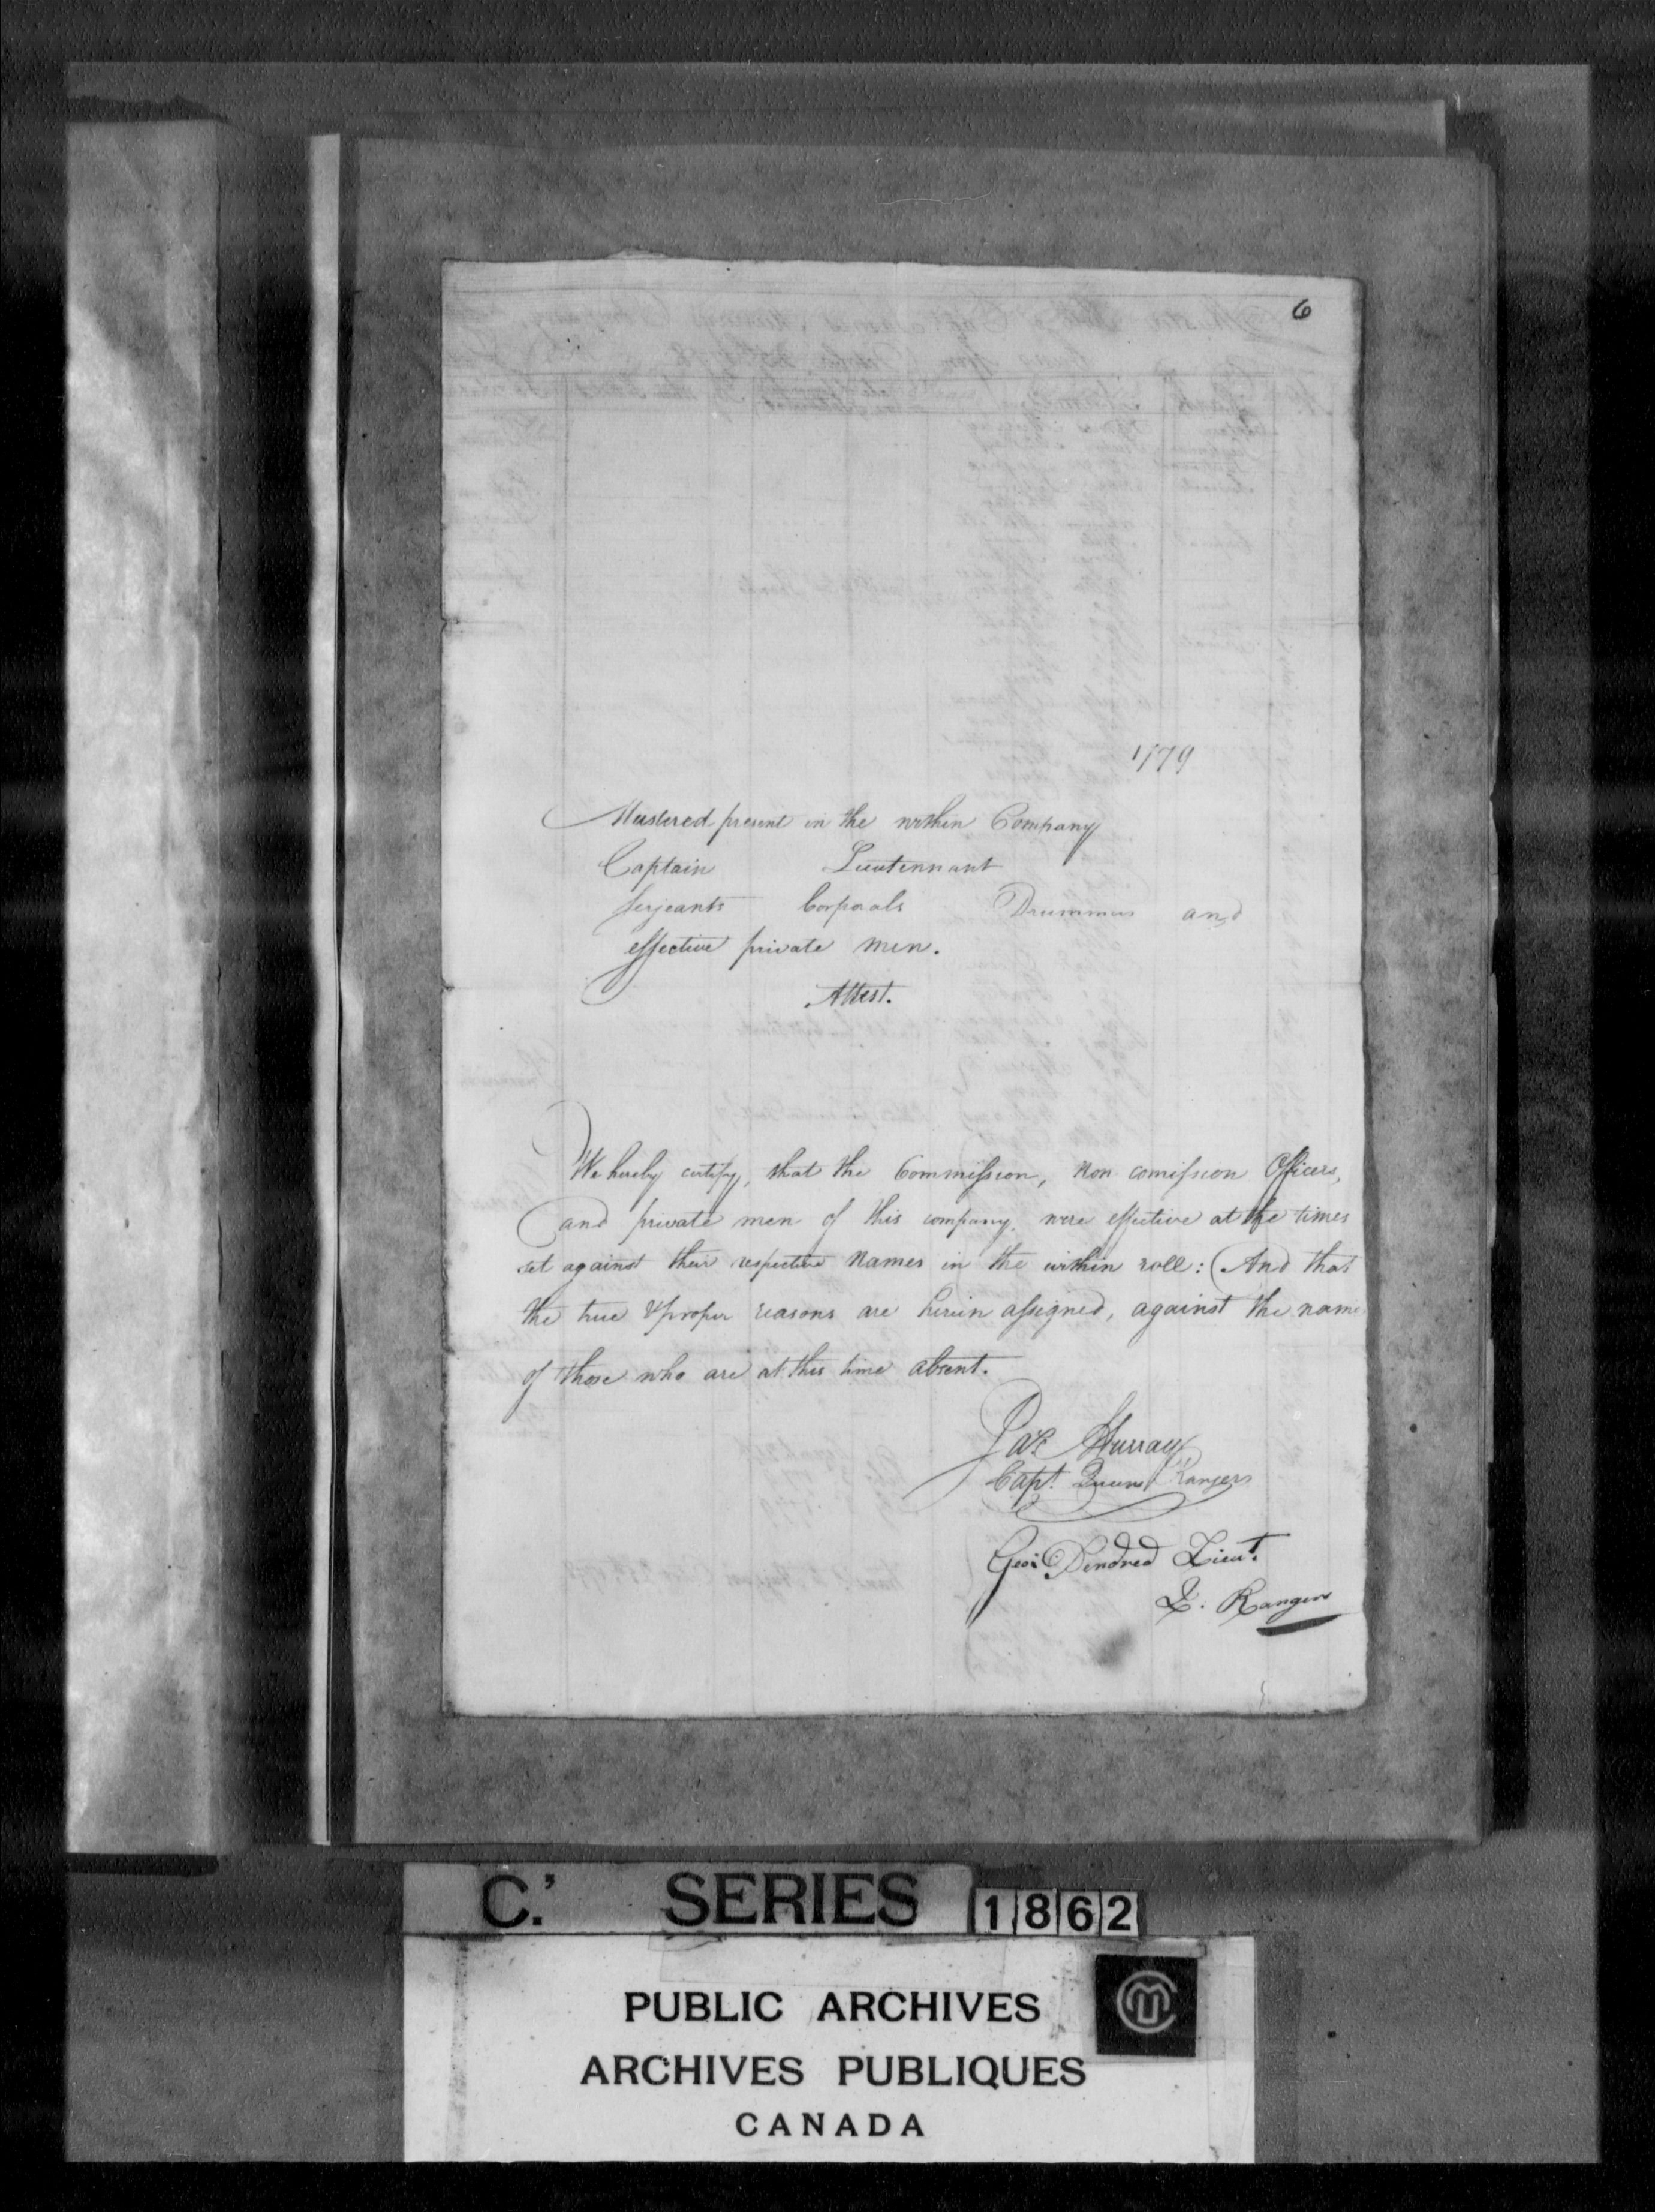 6
1779
Mustered present in the within Company
Captain Lieutennant
Serjeants Corporals Drummers and
effective private men.
Attest.
We hereby certify, that the Commission, Non comission Officers,
and private men of this company, were effective at the times
set against their respective Names in the within roll: And that
the true & proper reasons are herein assigned, against the name
of those who are at this time absent.
Jas Murray
Capt. Queens Rangers
Geo: Pendred Lieut.
Q. Rangers
C.' SERIES 1862
PUBLIC ARCHIVES
ARCHIVES PUBLIQUES
CANADA